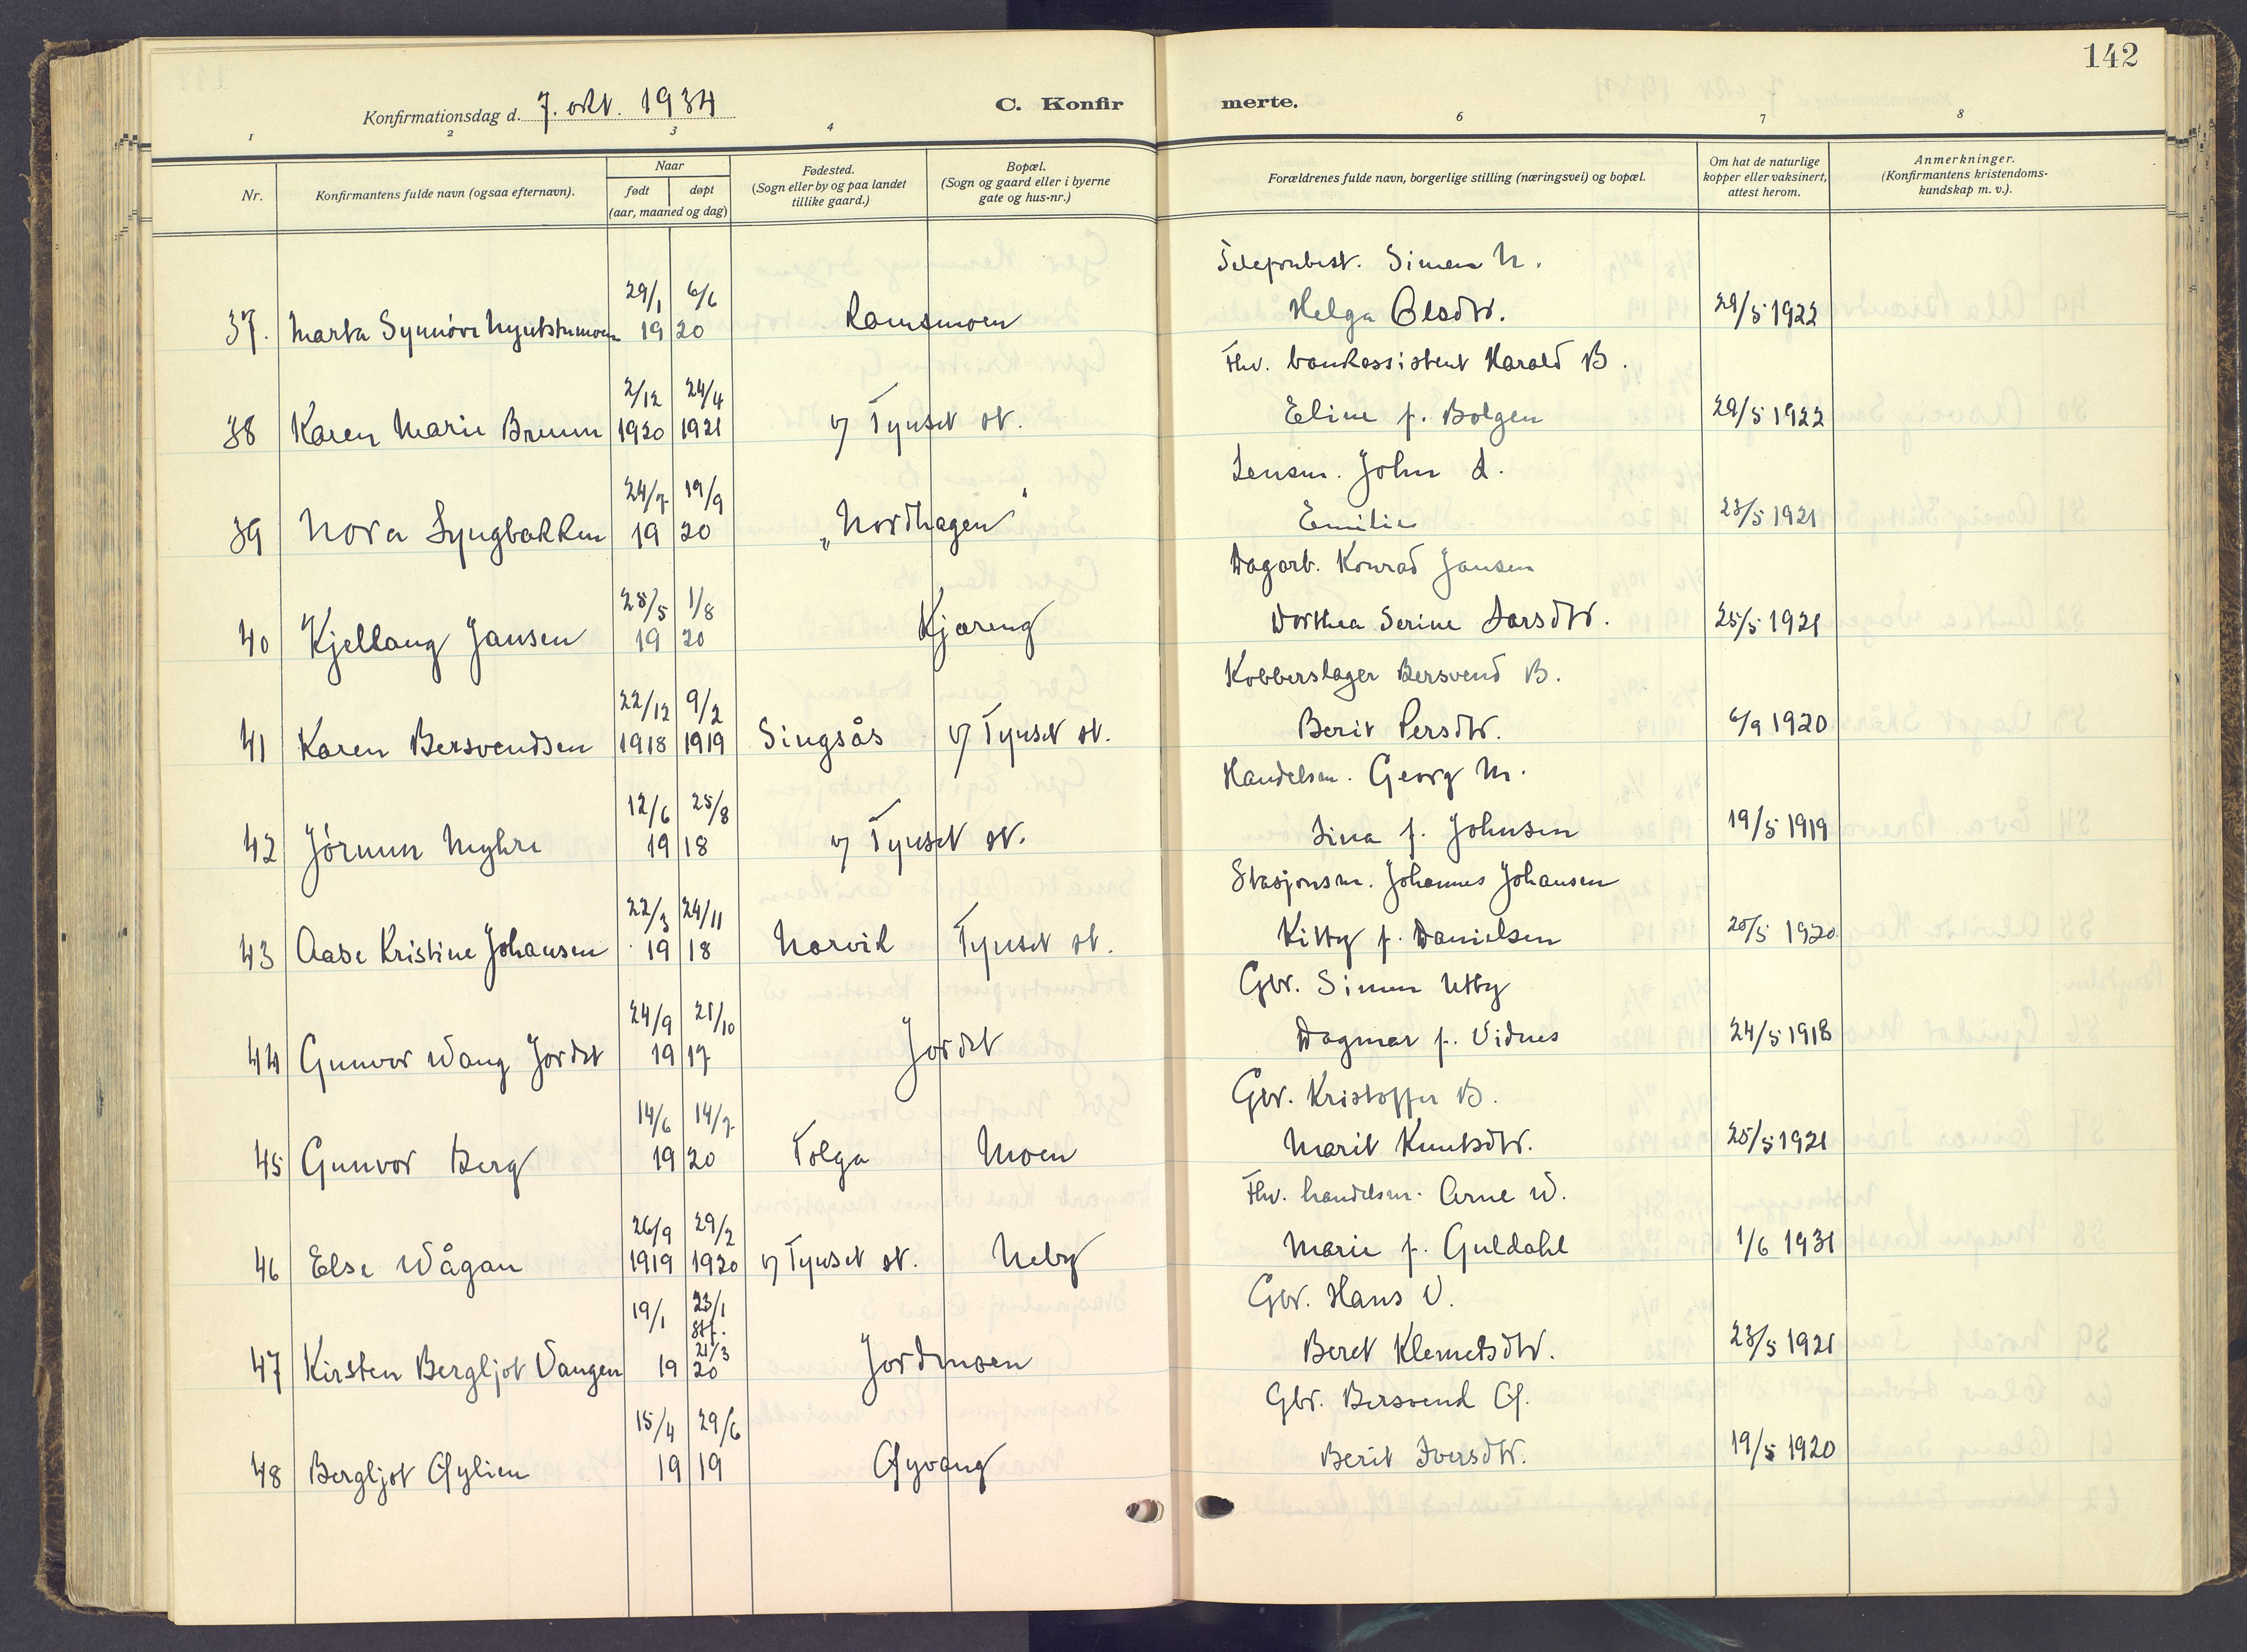 142
Konfirmationsdag d. 7. okt. 1934
C. Konfir merte.
1 2 3 4 6 7 8
Nr.
Konfirmantens fulde navn (ogsaa efternavn).
Naar
født døpt
(aar, maaned og dag)
Fødested.
(Sogn eller by og paa landet
tillike gaard.)
Bopæl.
(Sogn og gaard eller i byerne
gate og hus-nr.)
Forældrenes fulde navn, borgerlige stilling (næringsvei) og bopæl.
Om hat de naturlige
kopper eller vaksinert,
attest herom.
Anmerkninger.
(Konfirmantens kristendoms-
kundskap m. v.).
Simen N.
29/1 6/6
37. Marta Synnøve 19 20 Ramsmoen Helga Olsdtr. 29/5 1922
Fhv. bankassistent Harald B.
2/12 24/4
38 Karen Marie Bruun 1920 1921 v/ Tynset st. Eline f. Bolgen 29/5 1922
Lensm. John L.
24/7 19/9
39 Nora Lyngbakken 19 20 „Nordhagen" Emilie 23/5 1921
Dagarb. Konrad Jansen
28/5 1/8
40 Kjellaug Jansen 19 20 Kjæreng Dorthea Serine Larsdtr. 25/5 1921
Kobberslager Bersvend B.
22/12 9/2
41 Karen Bersvendsen 1918 1919 Singsås v/ Tynset st. Berit Persdtr. 6/9 1920
Handelsm. Georg M.
12/6 25/8
42 Jørunn Myhre 19 18 v/ Tynset st. Lina f. Johnsen 19/5 1919
Stasjonsm. Johannes Johansen
22/3 24/11
43 Aase Kristine Johansen 19 18 Narvik Tynset st. Kitty f. Danielsen 20/5 1920
Gbr. Simen Utby
24/9 21/10
44 Gunvor Wang Jordet 19 17 Jordet Dagmar f. Vidnes 24/5 1918
Gbr. Kristoffer B.
14/6 14/7
45 Gunvor Berg 19 20 Tolga Moen Marit Knutsdtr. 25/5 1921
Fhv. handelsm. Arne W.
26/9 29/2
46 Else Wågan 1919 1920 v/ Tynset st. Neby Marie f. Guldahl 1/6 1931
Gbr. Hans V.
19/1 23/1
stf.
21/3
47 Kirsten Bergljot Vangen 19 20 Jordmoen Beret Klemetsdtr. 23/5 1921
Gbr. Bersvend G.
15/4 29/6
48 Bergljot 19 19 Berit Iversdtr. 19/5 1920